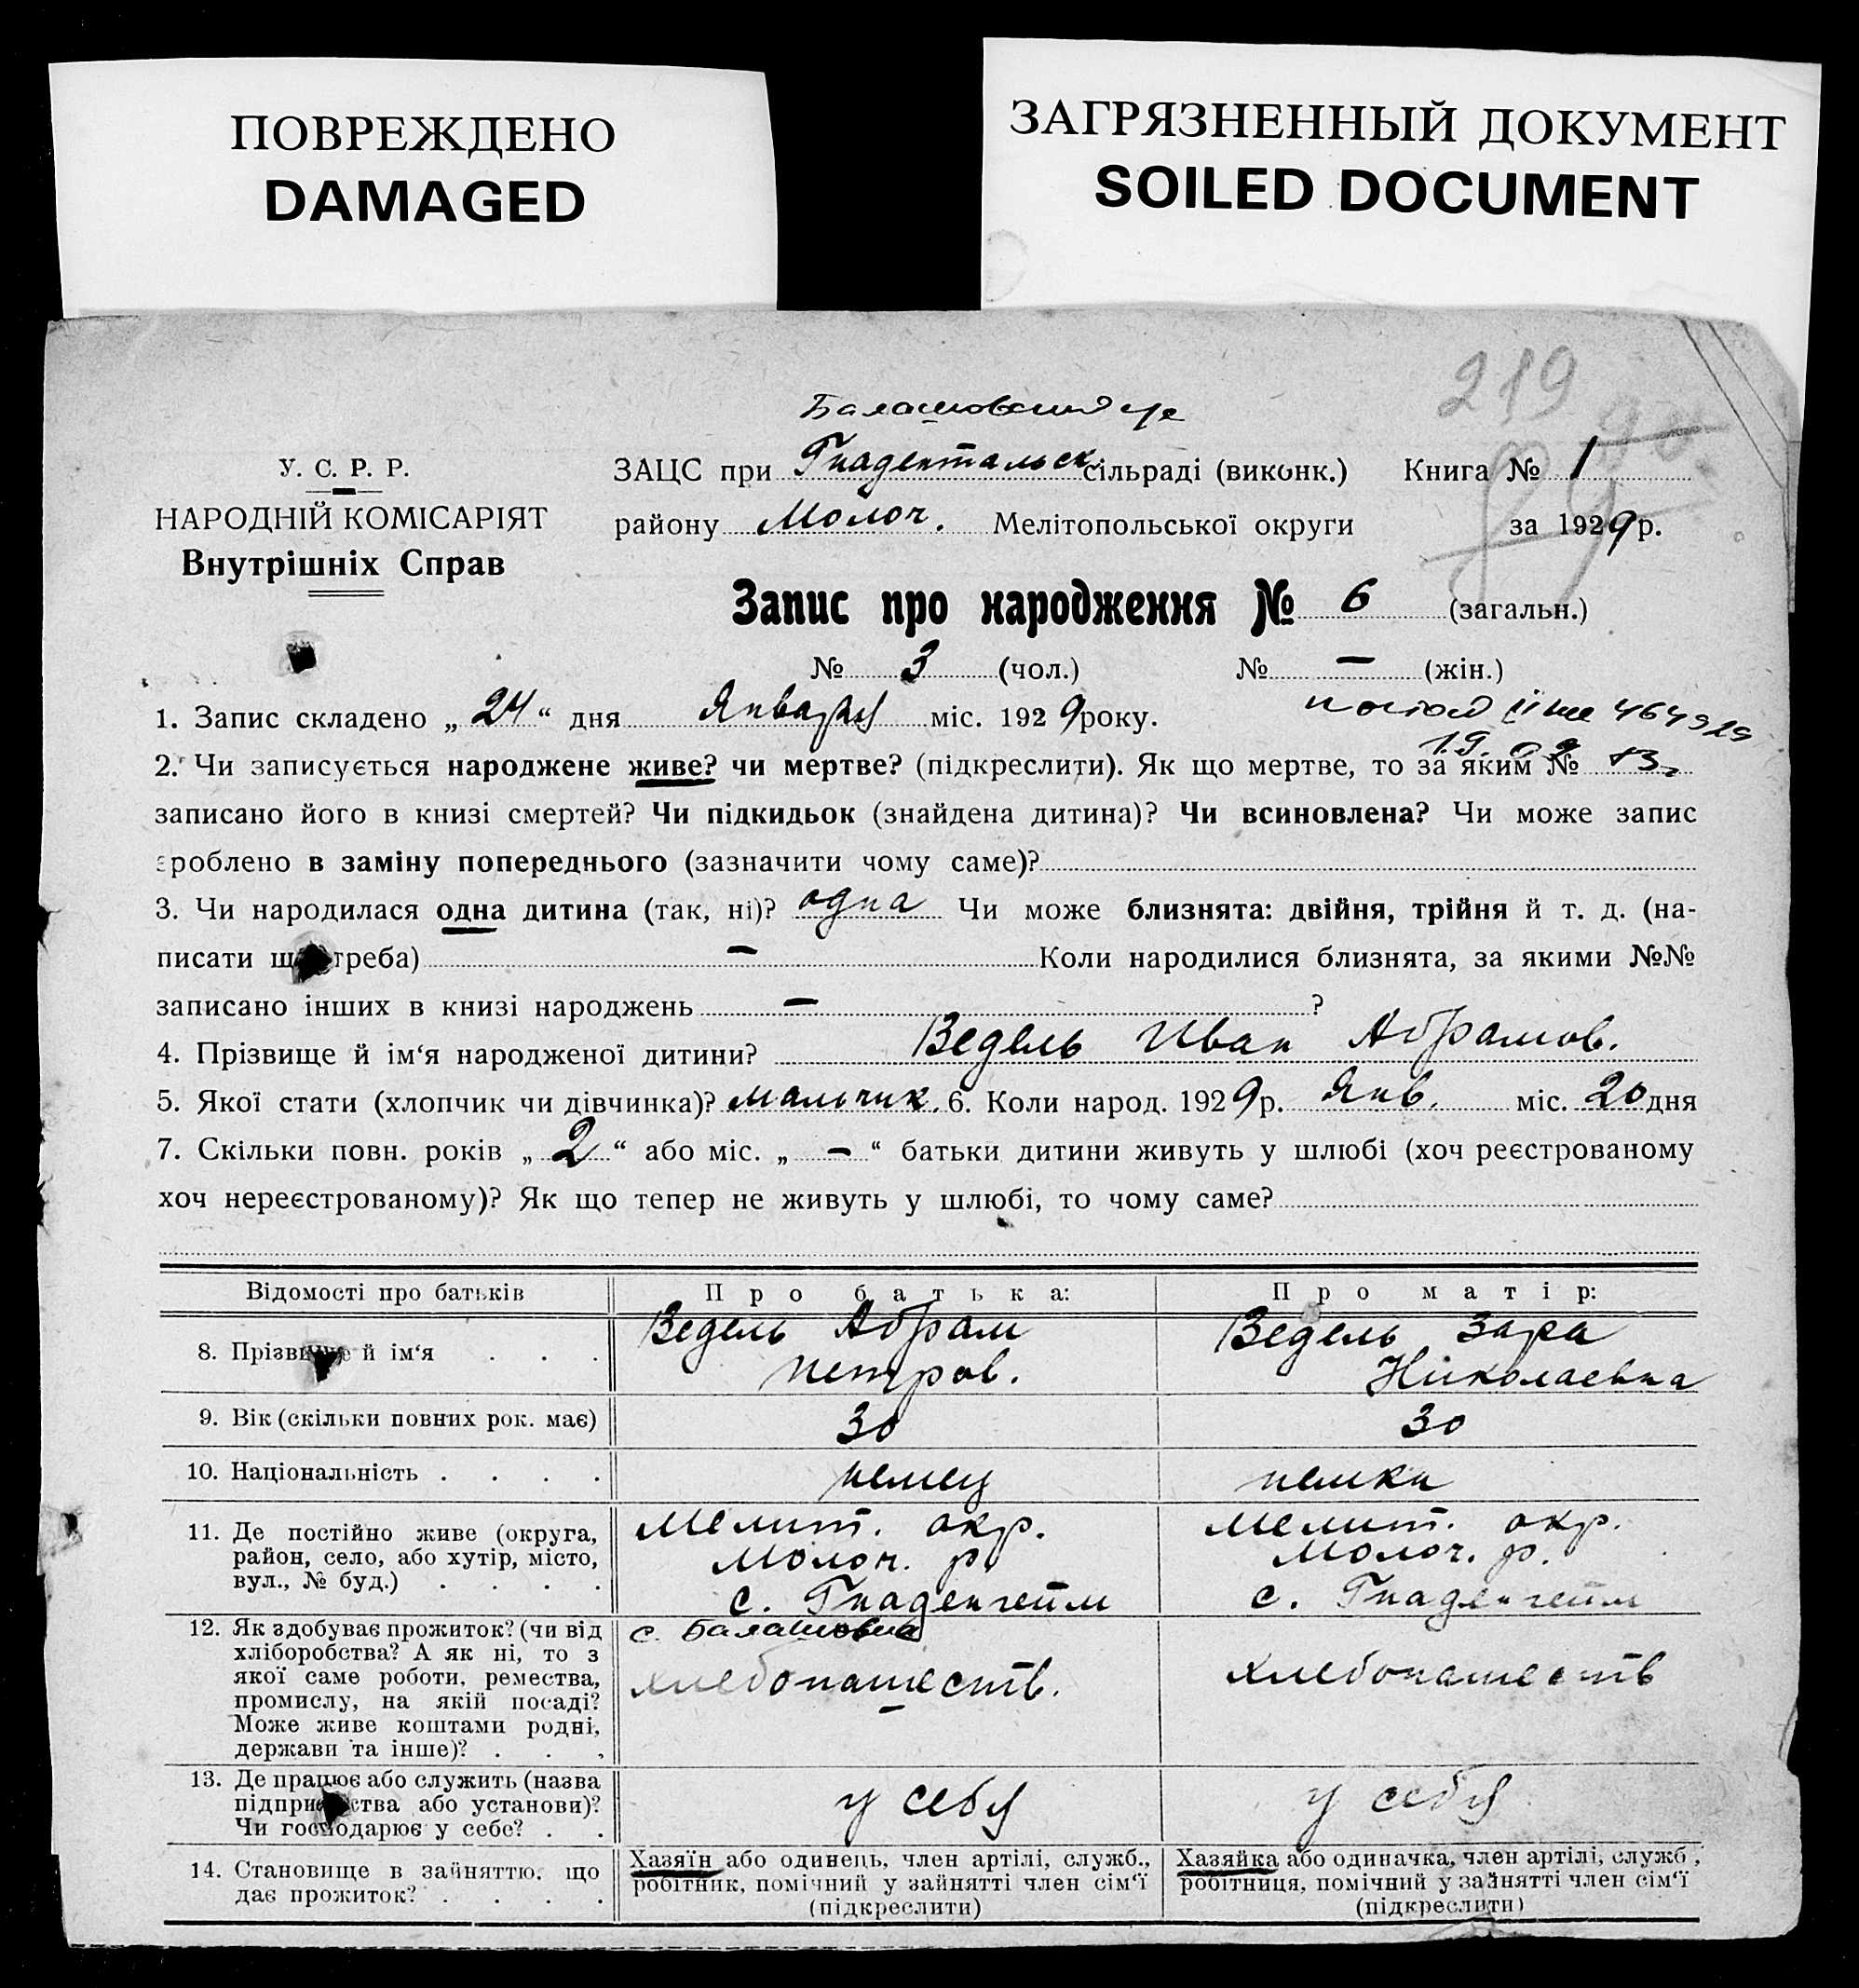 ПОВРЕЖДЕНО
DAMAGED
ЗАГРЯЗНЕННЫЙ ДОКУМЕНТ
SOILED DOCUMENT
219
У. С. Р. Р.
НАРОДНІЙ КОМІСАРІЯТ
Внутрішніх Справ
ЗАЦС при Гнадентальск. сільраді (виконк.) Книга № 1
району Молоч. Мелітопольської округи за 1929 р.
Запис про народження № 6 (загальн.)
№ 3 (чол.) № — (жін.)
1. Запис складено „ 24 “ дня Января міс. 1929 року.
2. Чи записується народжене живе? чи мертве? (підкреслити). Як що мертве, то за яким №
записано його в книзі смертей? Чи підкидьок (знайдена дитина)? Чи всиновлена? Чи може запис
зроблено в заміну попереднього (зазначити чому саме)?
3. Чи народилася одна дитина (так, ні)? одна Чи може близнята: двійня, трійня й т. д. (на-
писати що треба) — Коли народилися близнята, за якими №№
записано інших в книзі народжень — ?
4. Прізвище й ім‘я народженої дитини? Ведель Иван Абрамов.
5. Якої стати (хлопчик чи дівчинка)? мальчик. 6. Коли народ. 1929 р. Янв. міс. 20 дня
7. Скільки повн. років „ 2 “ або міс. „ — “ батьки дитини живуть у шлюбі (хоч реєстрованому
хоч нереєстрованому)? Як що тепер не живуть у шлюбі, то чому саме?
Відомості про батьків Про батька: Про матір:
8. Прізвище й ім‘я . . . Ведель Абрам Ведель Зара
Петров. Николаевна
9. Вік (скільки повних рок. має) 30 30
10. Національність . . . . немец немка
11. Де постійно живе (округа, район, село, або хутір, місто, вул., № буд.) . . . .
Мелит. окр. Мелит. окр.
Молоч. р. Молоч. р.
с. Гнаденгейм с. Гнаденгейм
с. Балашовка
12. Як здобуває прожиток? (чи від
хліборобства? А як ні, то з
якої саме роботи, ремества,
промислу, на якій посаді?
Може живе коштами родні,
держави та інше)? . . .
хлебопашеств. хлебопашеств
13. Де працює або служить (назва
підприємства або установи)?
Чи господарює у себе? . .
у себя у себя
14. Становище в зайняттю, що
дає прожиток? . . . .
Хазяїн або одинець, член артілі, служб.,
робітник, помічний у зайнятті член сім‘ї
(підкреслити)
Хазяйка або одиначка, член артілі, служб,
робітниця, помічний у зайнятті член сім‘ї
(підкреслити)